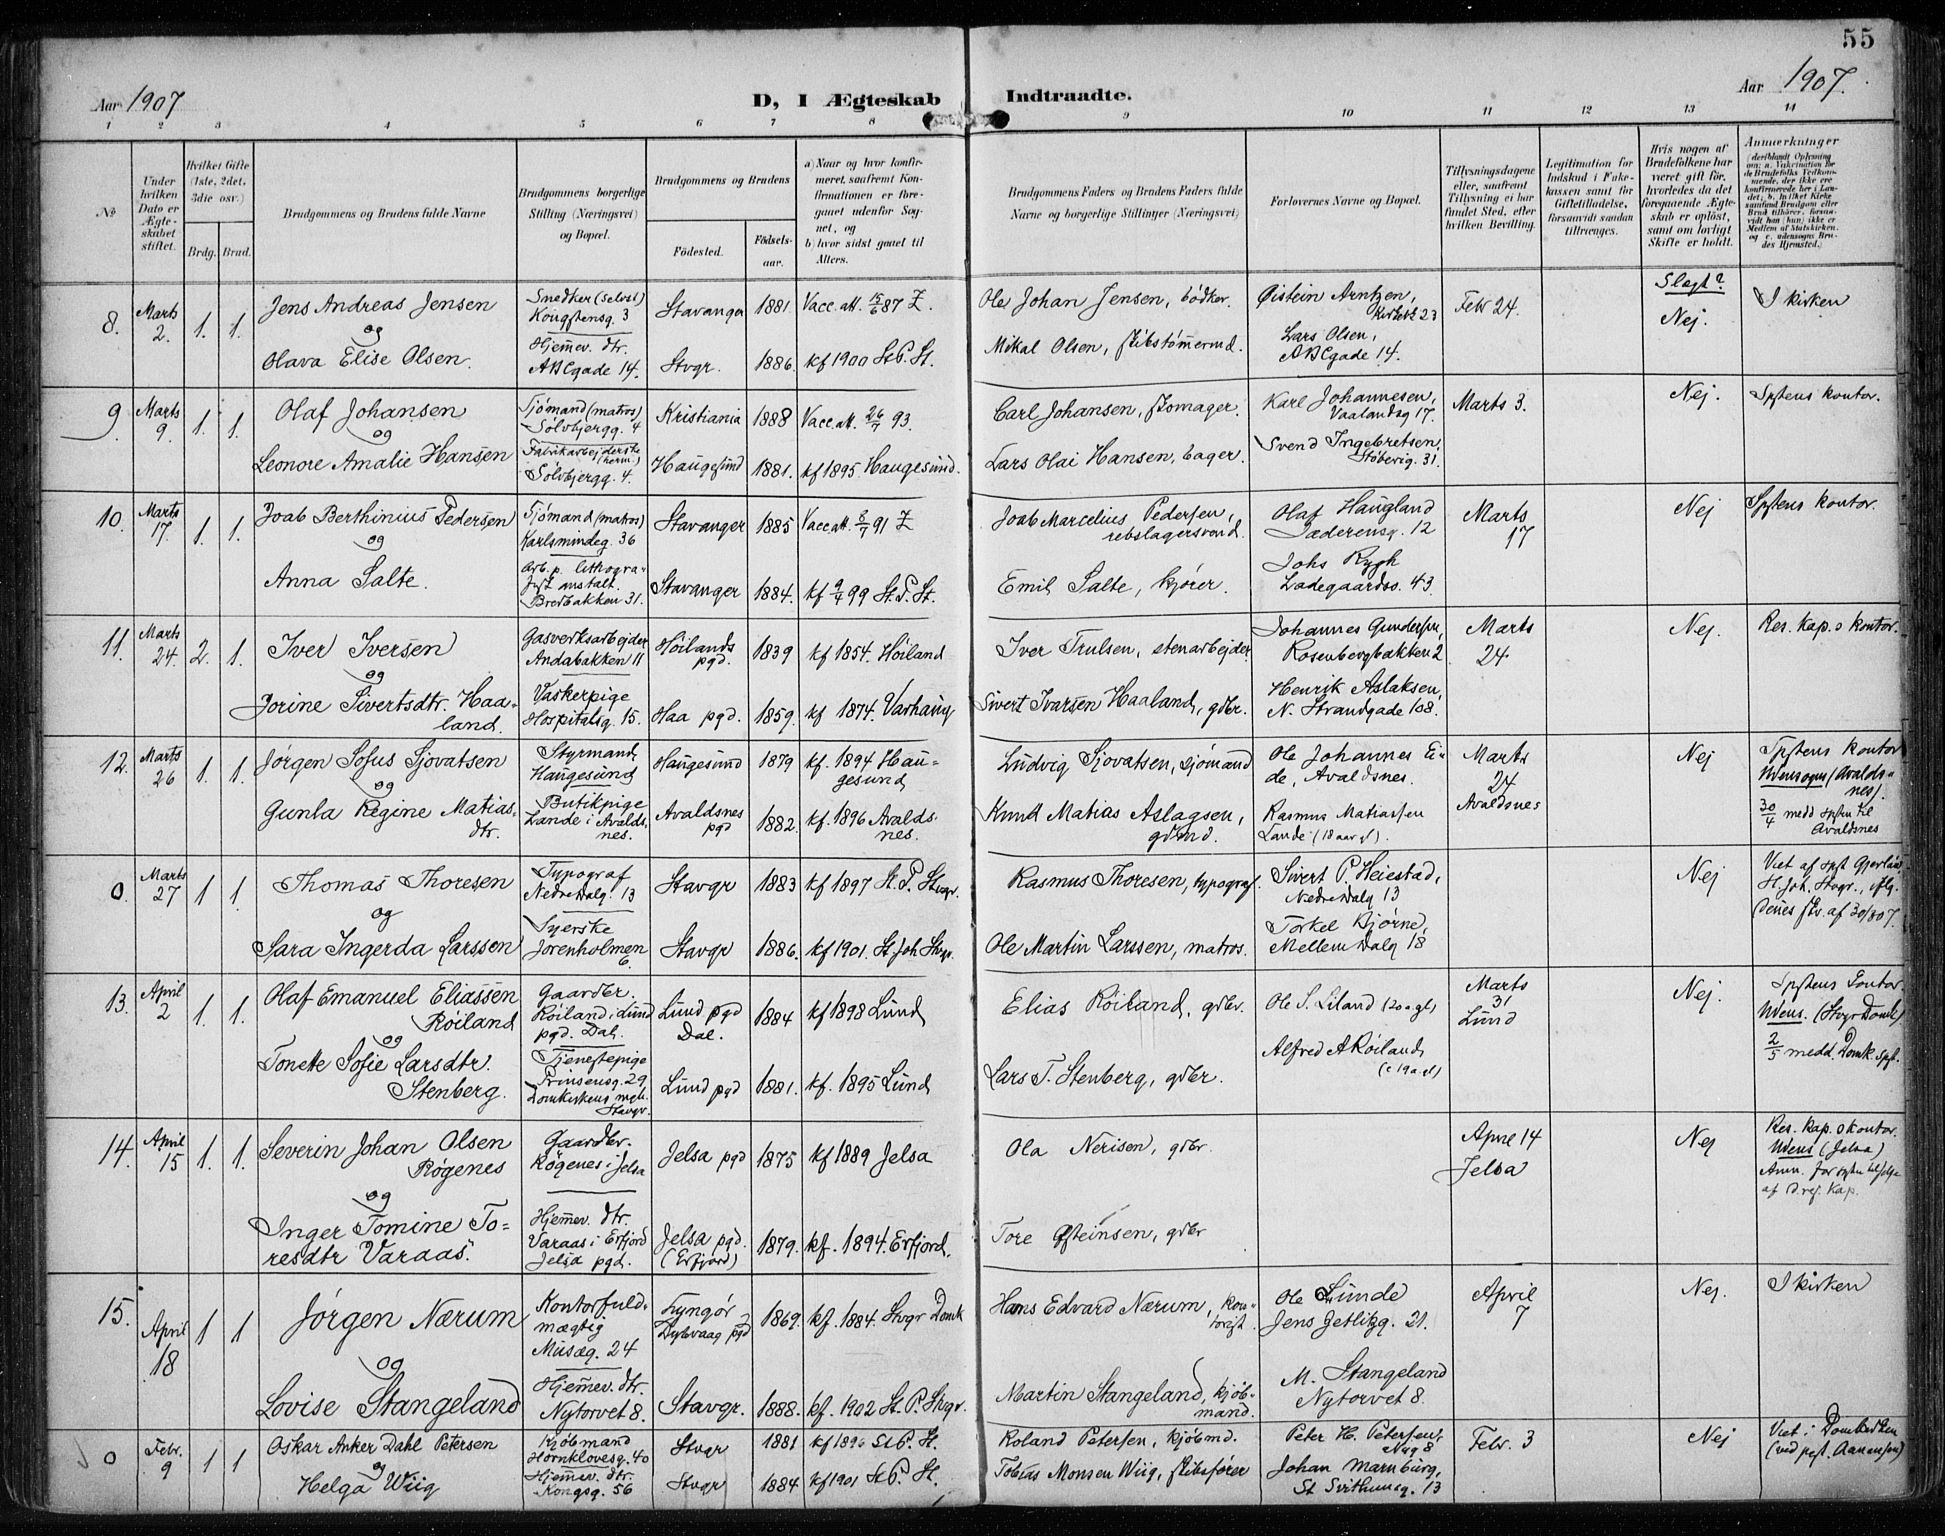 55
Aar 1907
D, I Ægteskab Indtraadte.
Aar 1907.
1 2 3 4 5 6 7 8 9 10 11 12 13 14
No
Under hvilken Dato er Ægteskabet stiftet.
Hvilket Gifte (1ste, 2det, 3die osv.)
Brdg. Brud.
Brudgommens og Brudens fulde Navne
Brudgommens borgerlige Stilling (Næringsvei) og Bopæl.
Brudgommens og Brudens
Fødested.
Fødselsaar.
a) Naar og hvor konfirmeret, saafremt Konfirmationen er foregaaet udenfor Sognet, og
b) hvor sidst gaaet til Alters.
Brudgommens Faders og Brudens Faders fulde Navne og borgerlige Stillinger (Næringsvei)
Forlovernes Navne og Bopæl.
Tillysningsdagene eller, saafremt Tillysning ei har fundet Sted, efter hvilken Bevilling.
Legitimation for Indskud i Enkekassen samt for Giftetilladelse, forsaavidt saadan tiltrænges.
Hvis nogen af Brudefolkene har været gift før, hvorledes da det foregaaende Ægteskab er opløst, samt om lovligt Skifte er holdt.
Anmærkninger
8. Marts 2. 1. 1.
Jens Andreas Jensen
og
Olava Elise Olsen.
Snedker (selvst)
Kongstensg. 3
Hjemmev. dtr.
ABCgade 14.
Stavanger 1881 Vacc. att. 15/6 87 Z.
Stvgr. 1886. kf 1900 St.P. St.
Ole Johan Jensen, bødker.
Mikal Olsen, skibstømmermd.
Øistein Arntzen,
Lars Olsen,
ABCgade 14.
Febr 24.
Slegt?
Nej.
I kirken
9. Marts 9. 1. 1.
Olaf Johansen
og
Leonore Amalie Hansen
Sjømand (matros)
Sølvbjergg. 4
Fabrikarbejderske (herm.)
Sølvbjergg. 4.
Kristiania 1888 Vacc. att. 26/7 93.
Haugesund 1881. kf 1895 Haugesund.
Carl Johansen, skomager.
Lars Olai Hansen, bager.
Karl Johannesen,
Vaalandsg 17.
Svend Ingebretsen,
Støberig. 31.
Marts 3.
Nej.
Spstens kontor.
10. Marts 17. 1. 1.
Joab Berthinius Pedersen
og
Anna Salte.
Sjømand (matros)
Karlsmindeg. 36
Arb. p. lithografisk anstalt.
Bredbakken 31.
Stavanger 1885 Vacc att. 8/7 91 Z
Stavanger 1884. kf 9/4 99 St. P. St.
Joab Marcelius Pedersen,
rebslagersvend.
Emil Salte, kjører.
Olaf Haugland
Jæderensg. 12
Johs Rygh
Ladegaardsv. 43
Marts 17
Nej
Spstens kontor.
11. Marts 24. 2. 1.
Iver Iversen
og
Jorine Sivertsdtr. Haaland.
Gasverksarbejder
Andabakken 11
Vaskerpige
Hospitalsg. 15.
Høilands pgd. 1839 kf 1854. Høiland
Haa pgd. 1859. kf 1874. Varhaug
Iver Trulsen, stenarbejder
Sivert Ivarsen Haaland, gdbr.
Johannes Gundersen,
Rosenbergbakken 2
Henrik Aslaksen,
N. Strandgade 108.
Marts 24
Nej.
Res. kap.s kontor.
12. Marts 26 1. 1.
Jørgen Sofus Sjovatsen
og
Gunla Regine Matiasdtr.
Styrmand
Haugesund
Butikpige
Lande i Avaldsnes.
Haugesund 1879 kf. 1894 Haugesund
Avaldsnes pgd 1882. kf. 1896 Avaldsnes.
Ludvig Sjovatsen, sjømand
Knud Matias Aslagsen, gdmd.
Ole Johannes Eide, Avaldsnes.
Rasmus Matiassen
Lande (18 aar gl).
Marts 24
Avaldsnes
Nej
Spstens kontor
Udensogns (Avaldsnes).
30/4 medd spsten til
Avaldsnes
0. Marts 27 1 1.
Thomas Thoresen
og
Sara Ingerda Larssen
Typograf
Nedre Dalg. 13
Syerske
Jorenholmen 6.
Stavgr 1883 kf 1897 St. P. Stvgr.
Stavgr 1886. kf 1901. St. Joh Stvgr.
Rasmus Thoresen, typograf.
Ole Martin Larssen, matros.
Sivert P. Heiestad,
Nedre Dalg 13
Torkel Bjørne,
Mellem Dalg 18
Nej
Viet af spst
St. Joh. Stvgr.,
skr. af 30/3 07.
13. April 2 1. 1.
Olaf Emanuel Eliassen
Røiland
og
Tonette Sofie Larsdtr.
Stenberg.
Gaardbr.
Røiland i Lund
pgd. Dal.
Tjenestepige
Prinsensg. 29,
Domkirkens mgh.
Stavgr.
Lund pgd Dal. 1884 kf 1898 Lund
Lund pgd 1881. kf. 1895 Lund
Elias Røiland, gdbr.
Lars T. Stenberg, gdbr.
Ole S. Liland (20 a gl)
Alfred A Røiland
(c 19 a gl)
Marts 31
Lund
Nej.
Spstens kontor.
Udens. (Stvgr Domk)
2/5 medd. Domk. spst.
14. April 15 1. 1.
Severin Johan Olsen
Røgenes
og
Inger Tomine Toresdtr Varaas.
Gaardbr.
Røgenes i Jelsa
Hjemmev. dtr.
Varaas i Erfjord
Jelsa pgd.
Jelsa pgd 1875 kf 1889 Jelsa
Jelsa pgd. (Erfjord) 1879. kf. 1894. Erfjord.
Ola Nerisen, gdbr.
Tore Østeinsen, gdbr
April 14
Jelsa
Nej
Res. kap.s kontor.
Udens (Jelsa)
af d. res. kap.
15. April 18 1 1
Jørgen Nærum
og
Lovise Stangeland
Kontorfuldmægtig
Musæg. 24
Hjemmev. dtr.
Nytorvet 8.
Lyngør
Dybvaag pgd 1869. kf. 1884. Stvgr Domk
Stavgr. 1888. kf. 1902 St. P. Stvgr.
Hans Edvard Nærum, kontorist.
Martin Stangeland, kjøbmand.
Ole Lunde
Jens Zetlitzg. 21.
M. Stangeland
Nytorvet 8.
April 7
Nej.
I kirken
0 Febr. 9 1 1
Oskar Anker Dahl Petersen
og
Helga Wiig
Kjøbmand
Hornklovesg. 40
Hjemmev. dtr.
Kongsg. 56
Stvgr 1881 kf 1896 St P. St.
Stvgr 1884 kf 1901 St P. St.
Roland Petersen, kjøbmd.
Tobias Monsen Wiig, skibsfører
Peter H. Petersen,
Johan Marnburg,
St Svithunsg. 13
Febr. 3
Nej
Viet i Domkirken
(ved pst. Aanensen)